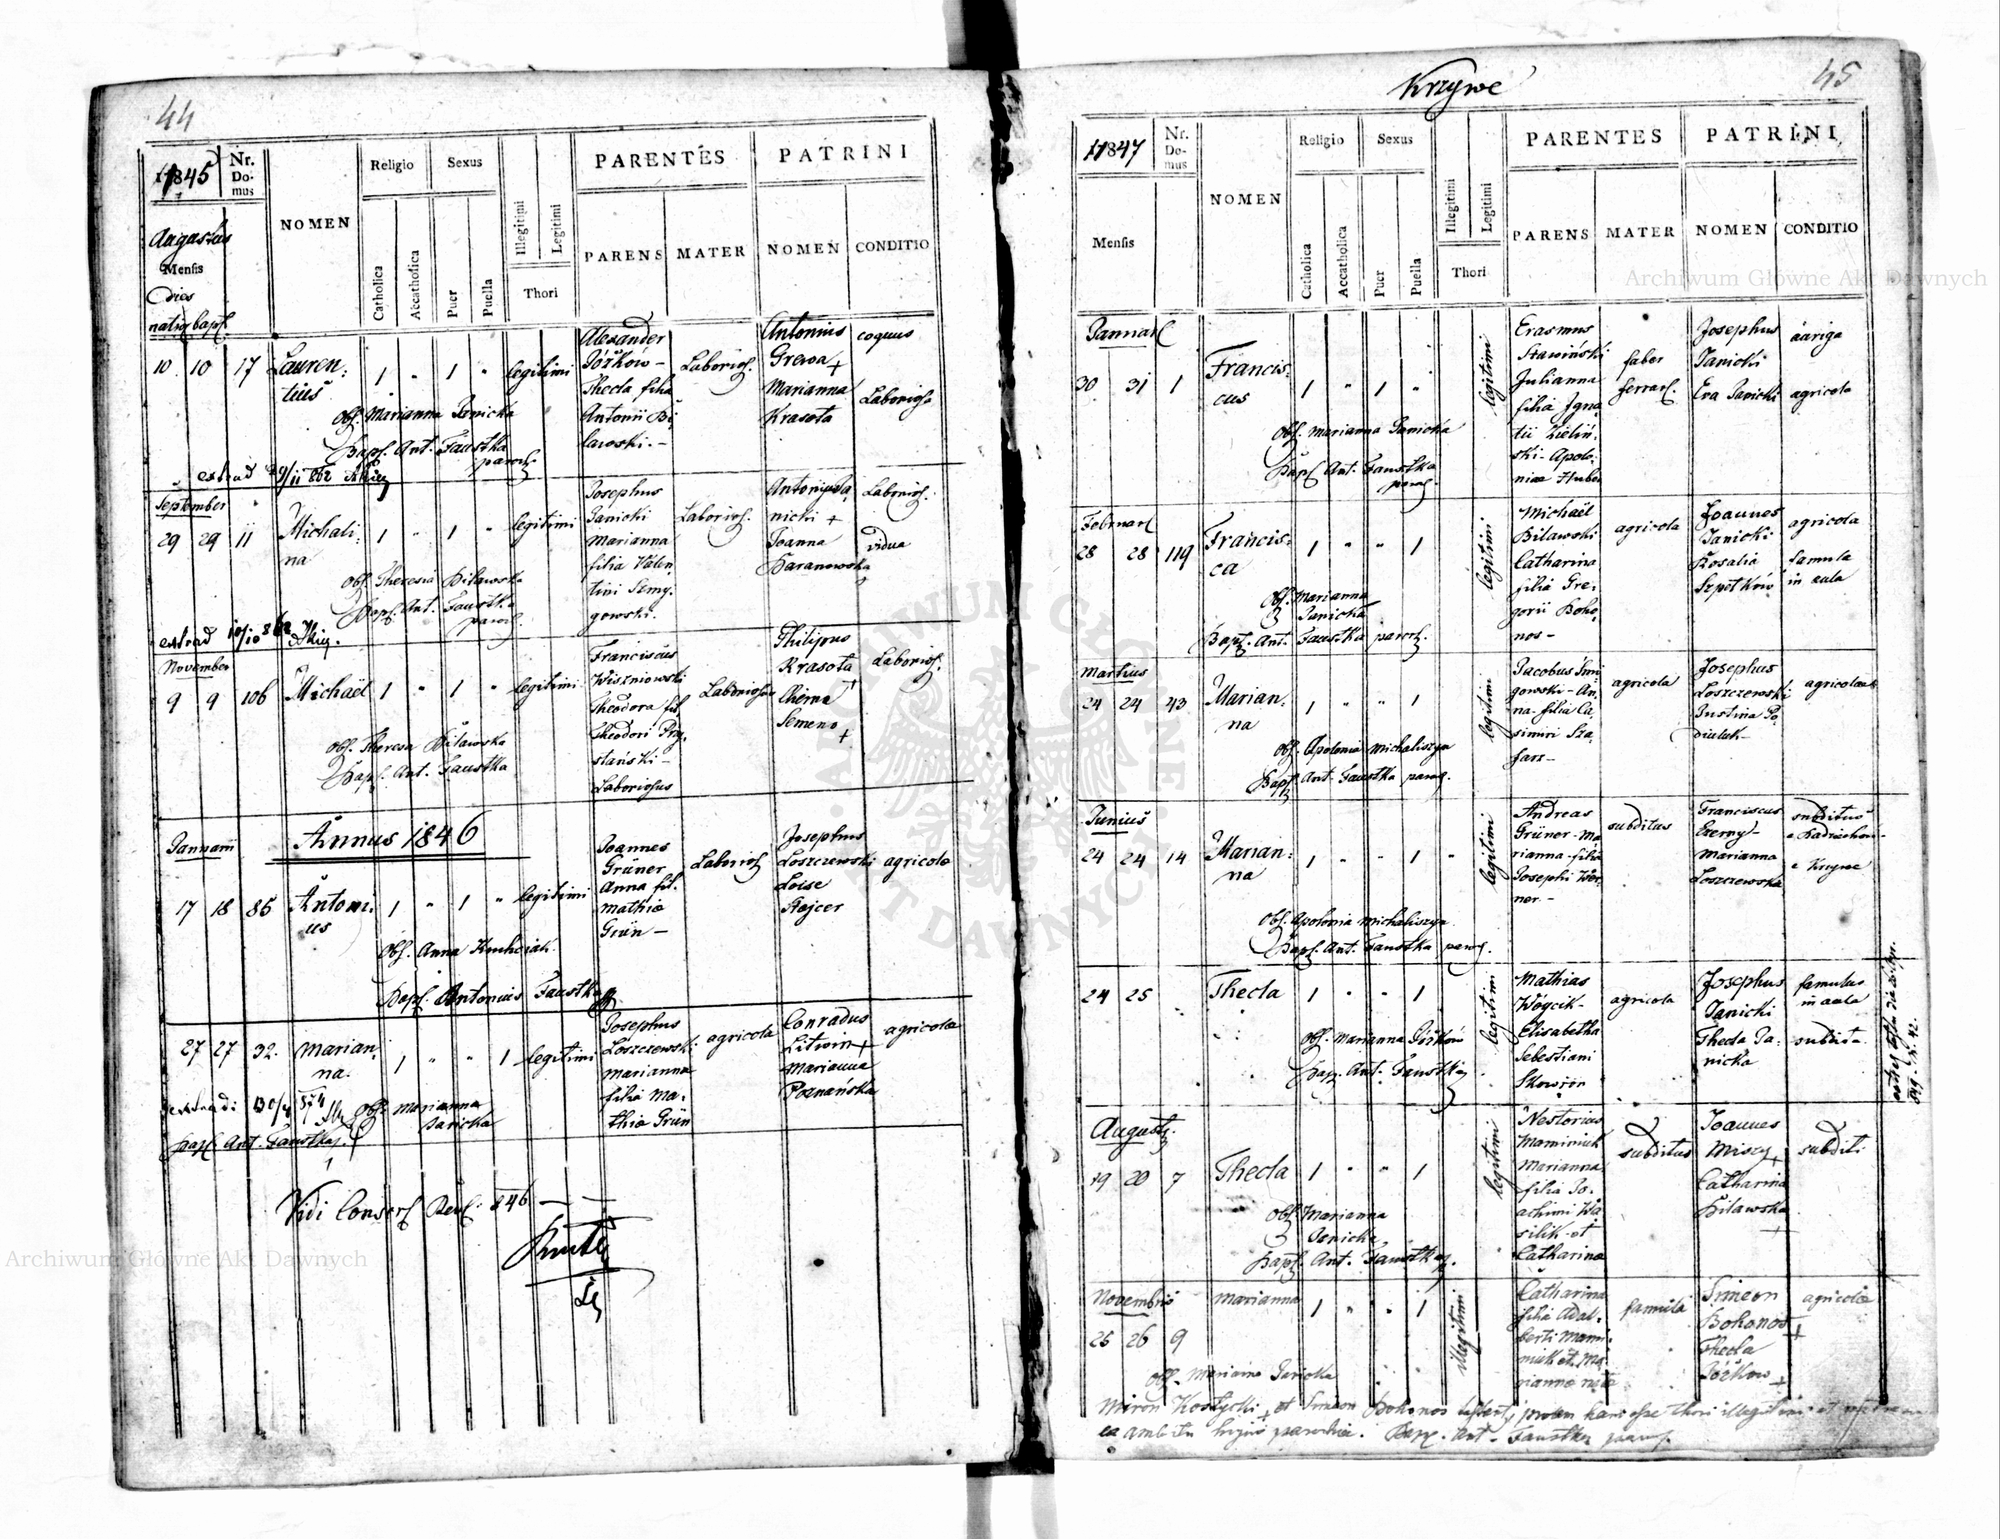 44
1845
Nr. Domus
NOMEN
Religio
Sexus
Catholica
Accatholica
Puer
Puella
Illegitimi
Legitimi
Thori
PARENTES
PATRINI
PARENS
MATER
NOMEN
CONDITIO
Augustus
Mensis
dies
10 10 17 Lauren:
tius
1 " 1 " legitimi
Alexander
Jóżków -
Thecla filia
Antonii Bi
lawski. -
Laborios.
Antonius
Grewa +
Marianna
Krasota
coquus
Laboriosa
Obs. Marianna Janicka
Bapt. Ant. Faustka
paroch.
September
29 29 11 Michali:
na
1 " 1 " legitimi
Josephus
Janicki
Marianna
filia Valen
tini Smy,
gowski.
Laborios.
Antonius Ja,
nicki +
Joanna
Baranowska
Laborios.
vidua
Obs. Theresia Bilawska
Bapt. Ant. Faustka
paroch.
November
9 9 106 Michaël
1 " 1 " legitimi
Franciscus
Wiszniowski
Theodora fil.
Theodori Przy,
stański -
Laboriosus
Laboriosa
Philipus
Krasota
+
Semeno
+
Laborios.
Obs. Theresa Bilawska
Bapt. Ant. Faustka
Annus 1846
Januarii
17 18 85 Antoni:
us
1 " 1 " legitimi
Joannes
Grüner
Anna fil.
Mathiæ
Grün -
Laborios.
Josephus
Loszczewski
Loise
Stejcer
agricola
Obs. Anna
Bapt. Antonius Faustka
27 27 32. Marian,
na.
1 " " 1 legitimi
Josephus
Loszczewski
Marianna
filia Ma:
thiæ Grün
agricola
Conradus
+
Marianna
Poznańska
agricolæ
Obs. Marianna
Janicka
Bapt. Ant. Faustka
Vidi
846
Krzywe
45
1847
Nr. Domus
NOMEN
Religio
Sexus
Catholica
Accatholica
Puer
Puella
Illegitimi
Legitimi
Thori
PARENTES
PATRINI
PARENS
MATER
NOMEN
CONDITIO
Mensis
Januar
30 31 1 Francis:
cus
1 " 1 " legitimi
Erasmus
Stawiński
Julianna
filia Igna
tii Zieliń,
ski - Apolo,
niæ Huber
faber
ferrar.
Josephus
Janicki
Eva Janicki
auriga
agricola
Obs. Marianna Janicka
Bapt. Ant. Faustka
paroch.
Februar
28 28 119 Francis:
ca
1 " " 1 legitimi
Michaël
Bilawski
Catharina
filia Gre,
gorii Boho
nos -
agricola
Joannes
Janicki
Rosalia
Szpetków
agricola
famula
in aula
Obs. Marianna
Janicka
Bapt. Ant. Faustka paroch.
Martius
24 24 43 Marian,
na
1 " " 1 legitimi
Jacobus Smi
gowski - An,
na filia Ca,
simiri Sza,
farz -
agricola
Josephus
Loszczewski
Justina Po,
dialuk
agricolæ
Obs. Apolonia Michaliszyn
Bapt. Ant. Faustka paroch.
Junius
24 24 14 Marian:
na
1 " " 1 " legitimi
Andreas
Grüner - Ma
rianna filia
Josephi Wer,
ner -
subditus
Franciscus
Czerny -
Marianna
Loszczewska
subditus
e Krzywe
Obs. Apolonia Michaliszyn
Bapt. Ant. Faustka paroch.
24 25 Thecla
1 " " 1 legitimi
Mathias
Wóycik -
Elisabetha
Sebestiani
Skowron
agricola
Josephus
Janicki
Thecla Ja,
nicka
famulus
in aula
subdita
Obs. Marianna Jóżków
Bapt. Ant. Faustka
August,
19 20 7 Thecla
1 " " 1 legitimi
Nestorius
Maminiuk
Marianna
filia Jo,
achimi Wa
silik et
Catharinæ
subditus
Joannes
Miszy +
Catharina
Bilawska
+
subditi
Obs. Marianna
Janicka
Bapt. Ant. Faustka
Novembris
25 26 9 Marianna
1 " " 1 illegitimi
Catharina
filia Adal,
berti Mami,
niuk et Ma,
riannæ natæ
famula
Simeon
Bohonos
+
Thecla
Jóżkow +
agricolæ
Obs. Marianna Janicka
Miron Kostycki + et Simeon Bohonos testantur prolem hanc esse thori illegitimi et
ea ambitu hujus parochiæ. Bapt. Ant. Faustka paroch.
Archiwum Główne Akt Dawnych
Archiwum Główne Akt Dawnych
ARCHIWUM GŁÓWNE AKT DAWNYCH